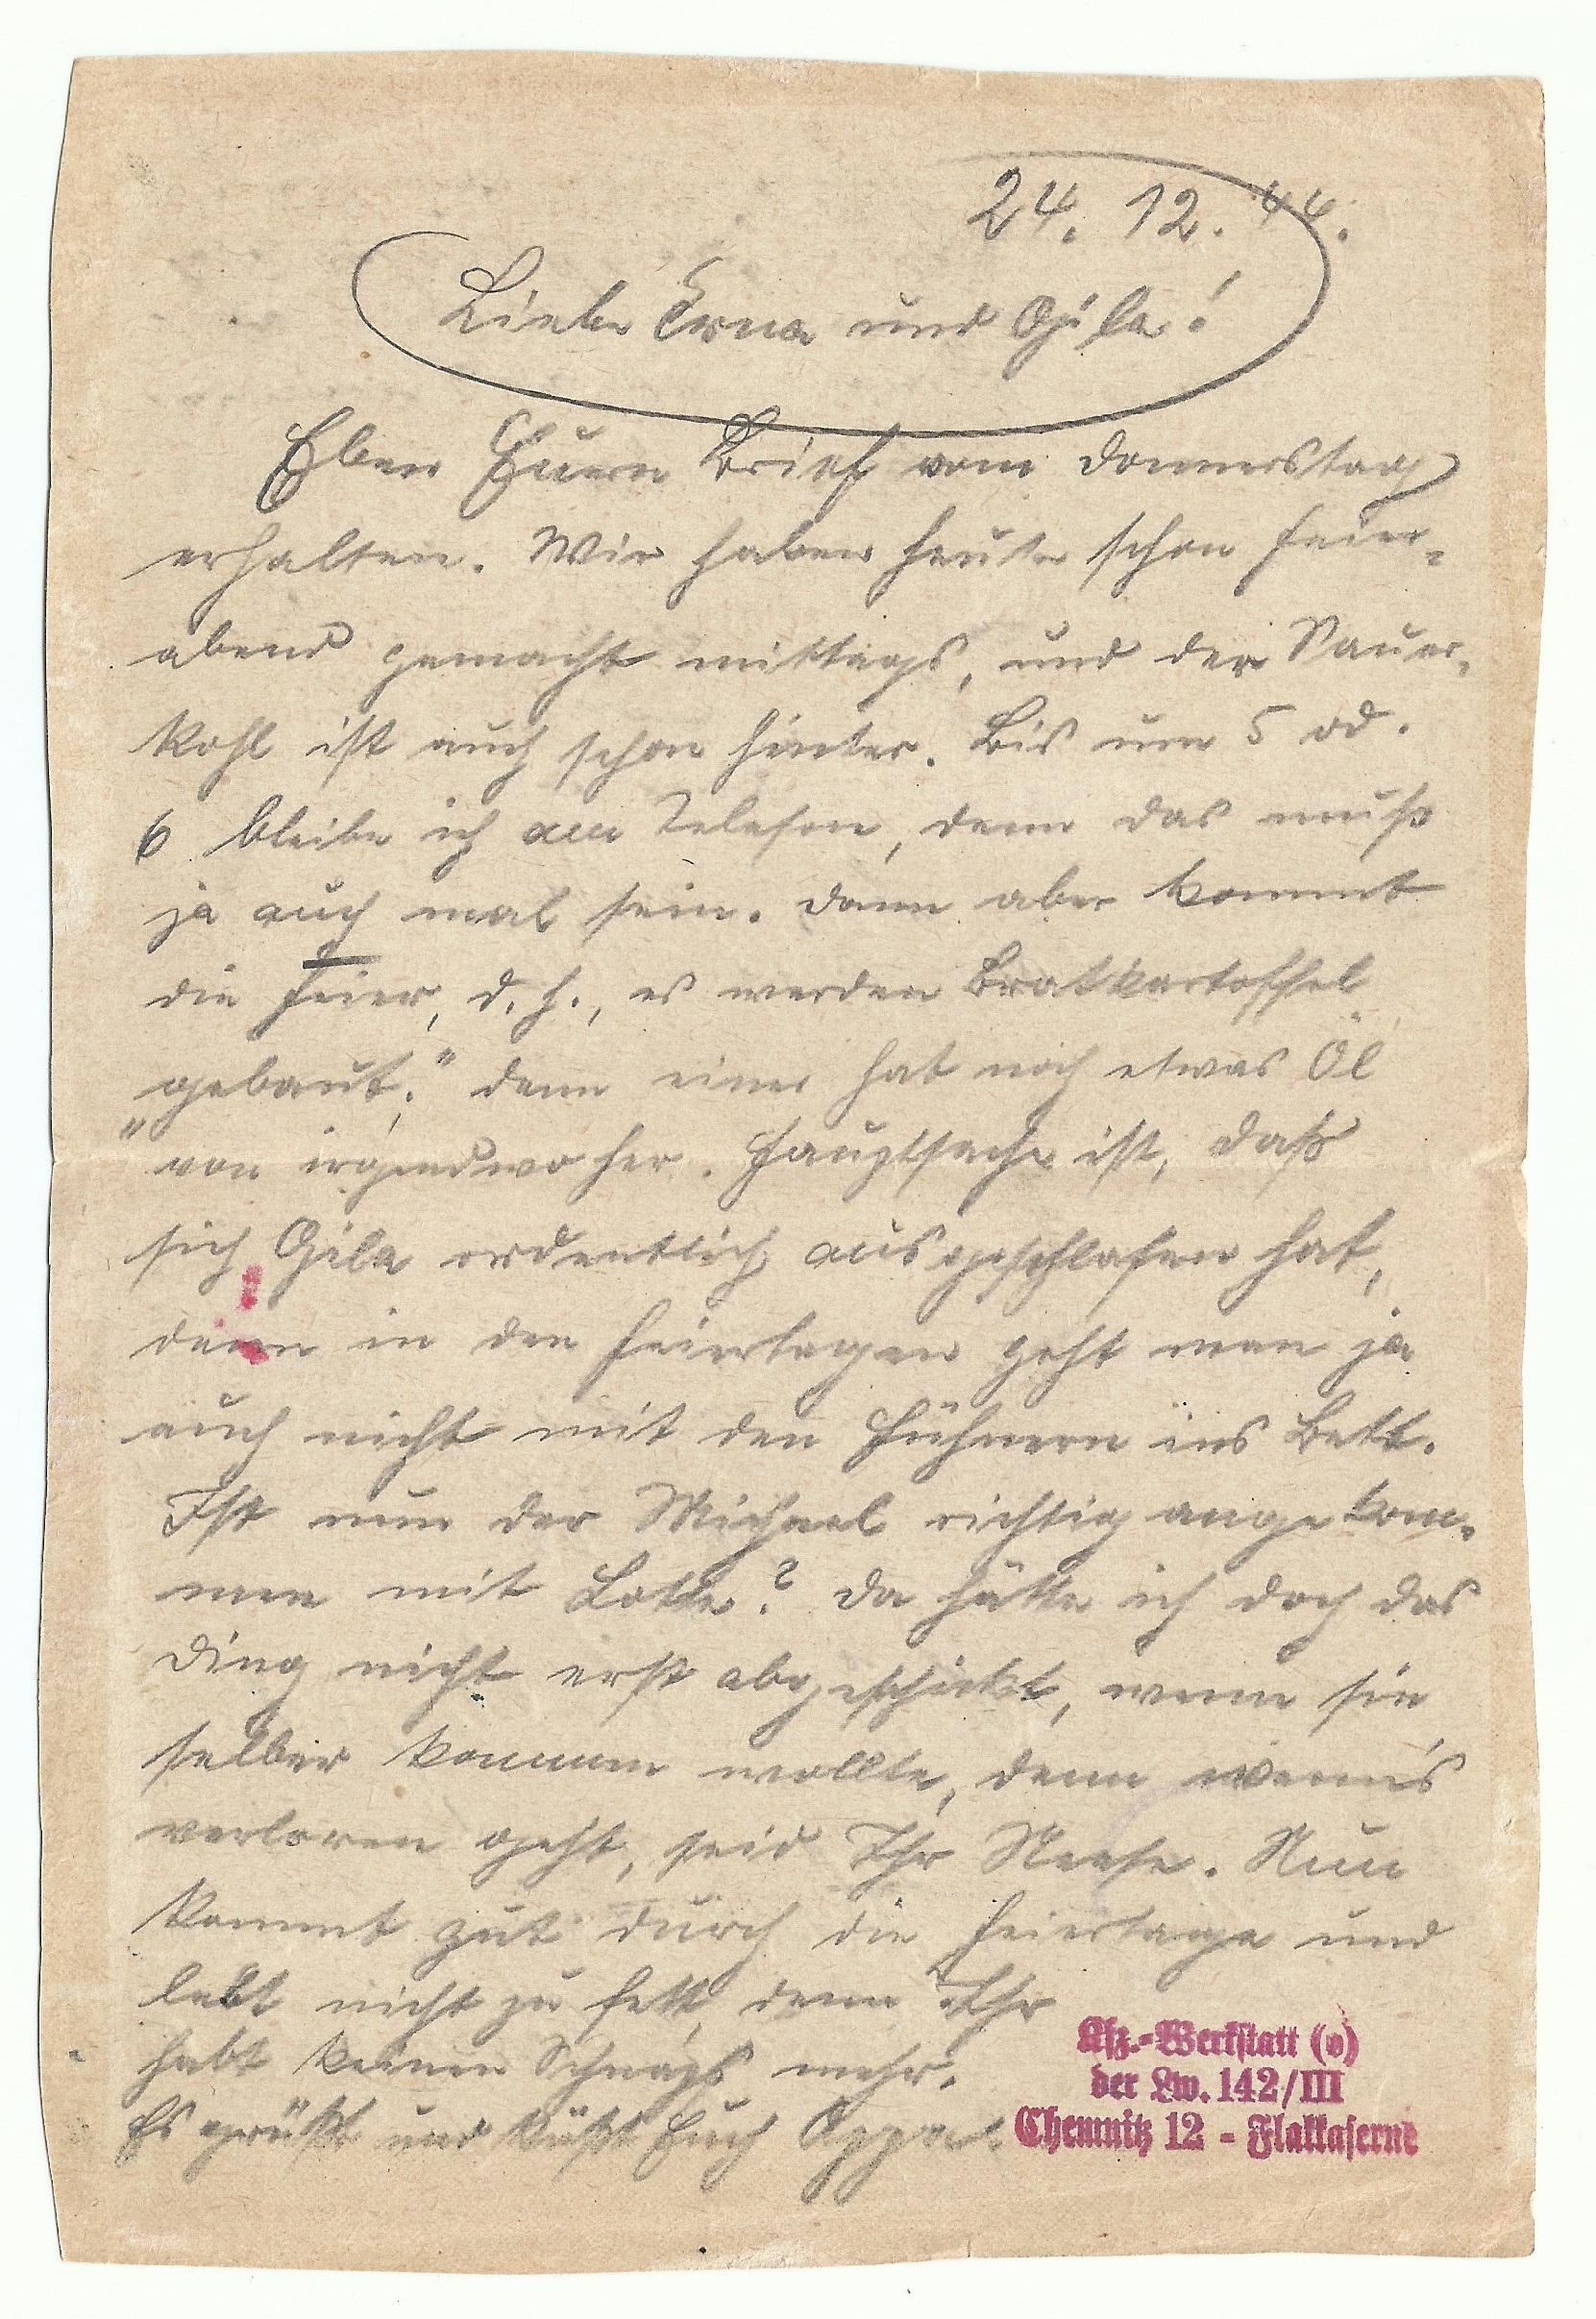 24. 12. 44.
Liebe Erna und Gila!
Eben Euern Brief vom Donnerstag
erhalten. Wir haben heute schon Feier-
abend gemacht mittags, und der Sauer-
kohl ist auch schon hinter. Bis um 5 od.
6 bleibe ich am Telefon, denn das muß
ja auch mal sein. Dann aber kommt
die Feier, d. h., es werden Bratkartoffel
„gebaut," denn einer hat noch etwas Öl
von irgendwo her. Hauptsache ist, daß
sich Gila ordentlich ausgeschlafen hat,
denn in den Feiertagen geht man ja
auch nicht mit den Hühnern ins Bett.
Ist nun der Michael richtig angekom-
men mit Lotte? Da hätte ich doch das
Ding nicht erst abgeschickt, wenn sie
selber kommen wollte, denn wenn's
verloren geht, seid Ihr Neese. Nun
kommt gut durch die Feiertage und
lebt nicht zu fett, denn Ihr
habt keinen Schnaps mehr.
Es grüßt und küßt Euch Appa.
Kfz.-Werkstatt (o)
der Lw. 142/III
Chemnitz 12 - Flakkaserne